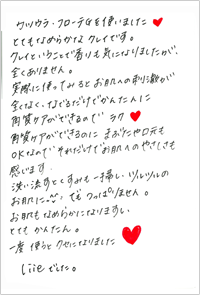 ウツウラ・フローテGを使いました
とてもなめらかな クレイです。
クレイということで香りも気になりましたが、
全くありません。
実際に使ってみると お肌への刺激が
全くなく、なでるだけでかんたんに
角質ケアができるので ラク
角質ケアができるのに まぶたや口元も
OKなので それだけでお肌へのやさしさも
感じます
洗い流すとくすみも一掃し、ツルツルの
お肌に でも つっぱりません。
お肌もなめらかになりますし
とても かんたん。
一度 使うと クセになりました
liieでした。